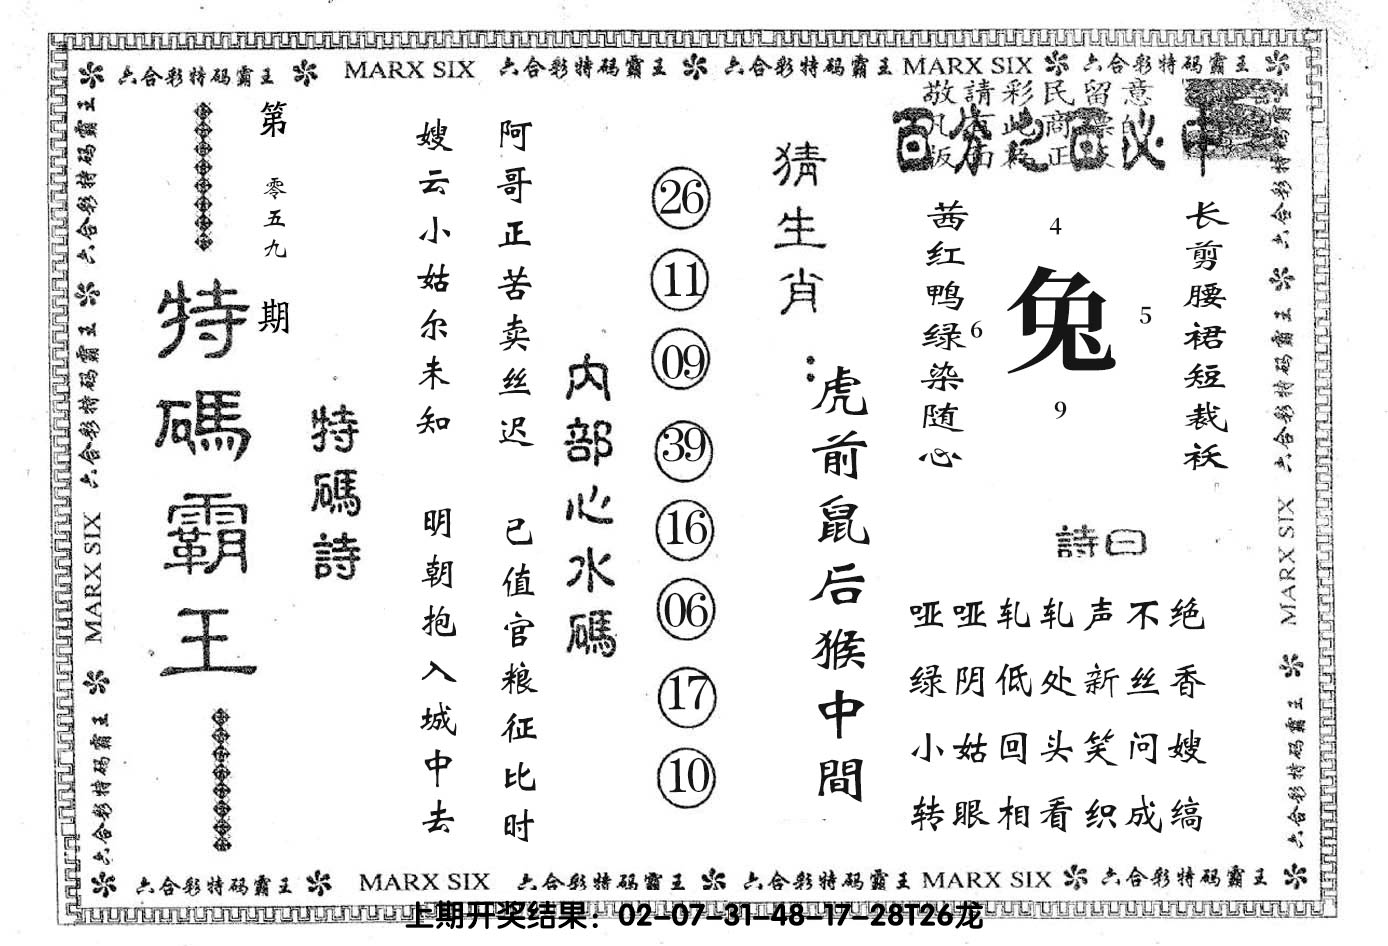 六合彩特码霸王 MARX SIX 六合彩特码霸王 六合彩特码霸王 MARX SIX 六合彩特码霸王
六合彩特码霸王
六合彩特码霸王
MARX SIX
六合彩特码霸王
六合彩特码霸王
六合彩特码霸王
MARX SIX
六合彩特码霸王
第零五九期
特碼霸王
特碼詩
嫂云小姑尔未知
明朝抱入城中去
阿哥正苦卖丝迟
已值官粮征比时
内部心水碼
26
11
09
39
16
06
17
10
猜生肖:
虎前鼠后猴中間
敬請彩民留意
茜红鸭绿染随心
4
6
兔
5
9
长剪腰裙短裁袄
詩曰
哑哑轧轧声不绝
绿阴低处新丝香
小姑回头笑问嫂
转眼相看织成缟
六合彩特码霸王 MARX SIX 六合彩特码霸王 六合彩特码霸王 MARX SIX 六合彩特码霸王
上期开奖结果：02-07-31-48-17-28T26龙